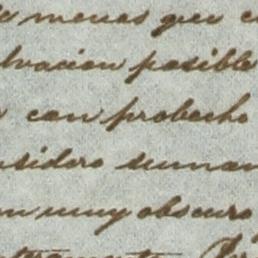 menos que
lvacion posible
con probecho
nsidero suman
muy obscuro